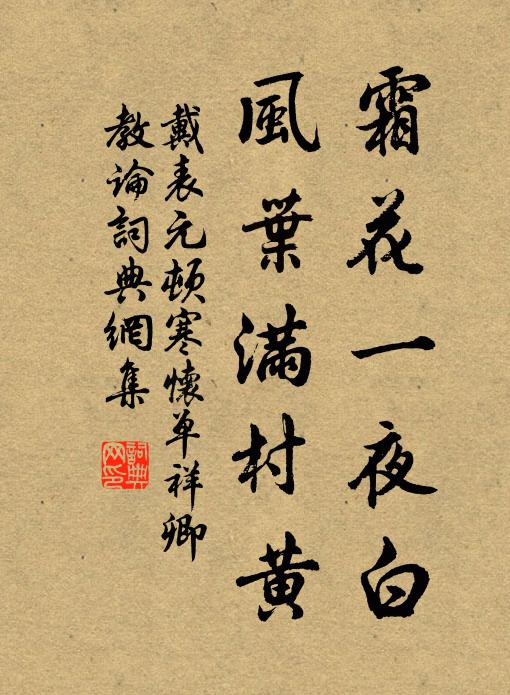 霜花一夜白
風葉滿村黃
戴表元頓寒懷單祥卿
教論詞典網集
詞典
网印